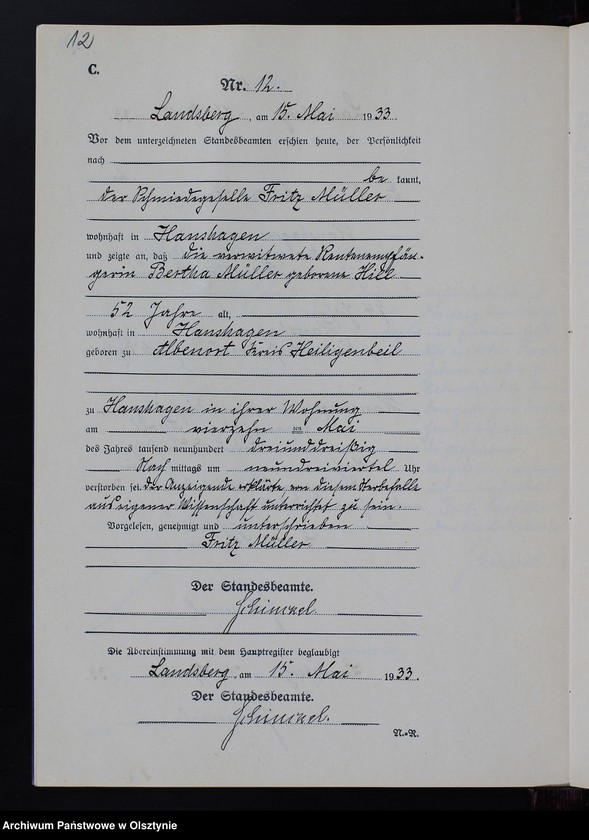 12
C.
Nr. 12.
Landsberg, am 15. Mai 1933
Vor dem unterzeichneten Standesbeamten erschien heute, der Persönlichkeit
nach
be kannt,
der Schmiedegeselle Fritz Müller
wohnhaft in Hanshagen
und zeigte an, daß die verwitwete Rentenempfän-
gerin Bertha Müller geborene Hill
52 Jahre alt,
wohnhaft in Hanshagen
geboren zu Albenort Kreis Heiligenbeil
zu Hanshagen in ihrer Wohnung
am vierzehn ten Mai
des Jahres tausend neunhundert dreiunddreißig
Nach mittags um neundreiviertel Uhr
verstorben sei. Der Anzeigende erklärte von diesem Sterbefalle
aus eigener Wissenschaft unterrichtet zu sein.
Vorgelesen, genehmigt und unterschrieben
Fritz Müller
Der Standesbeamte.
Die Übereinstimmung mit dem Hauptregister beglaubigt
Landsberg, am 15. Mai 1933.
Der Standesbeamte.
N.-R.
Archiwum Państwowe w Olsztynie